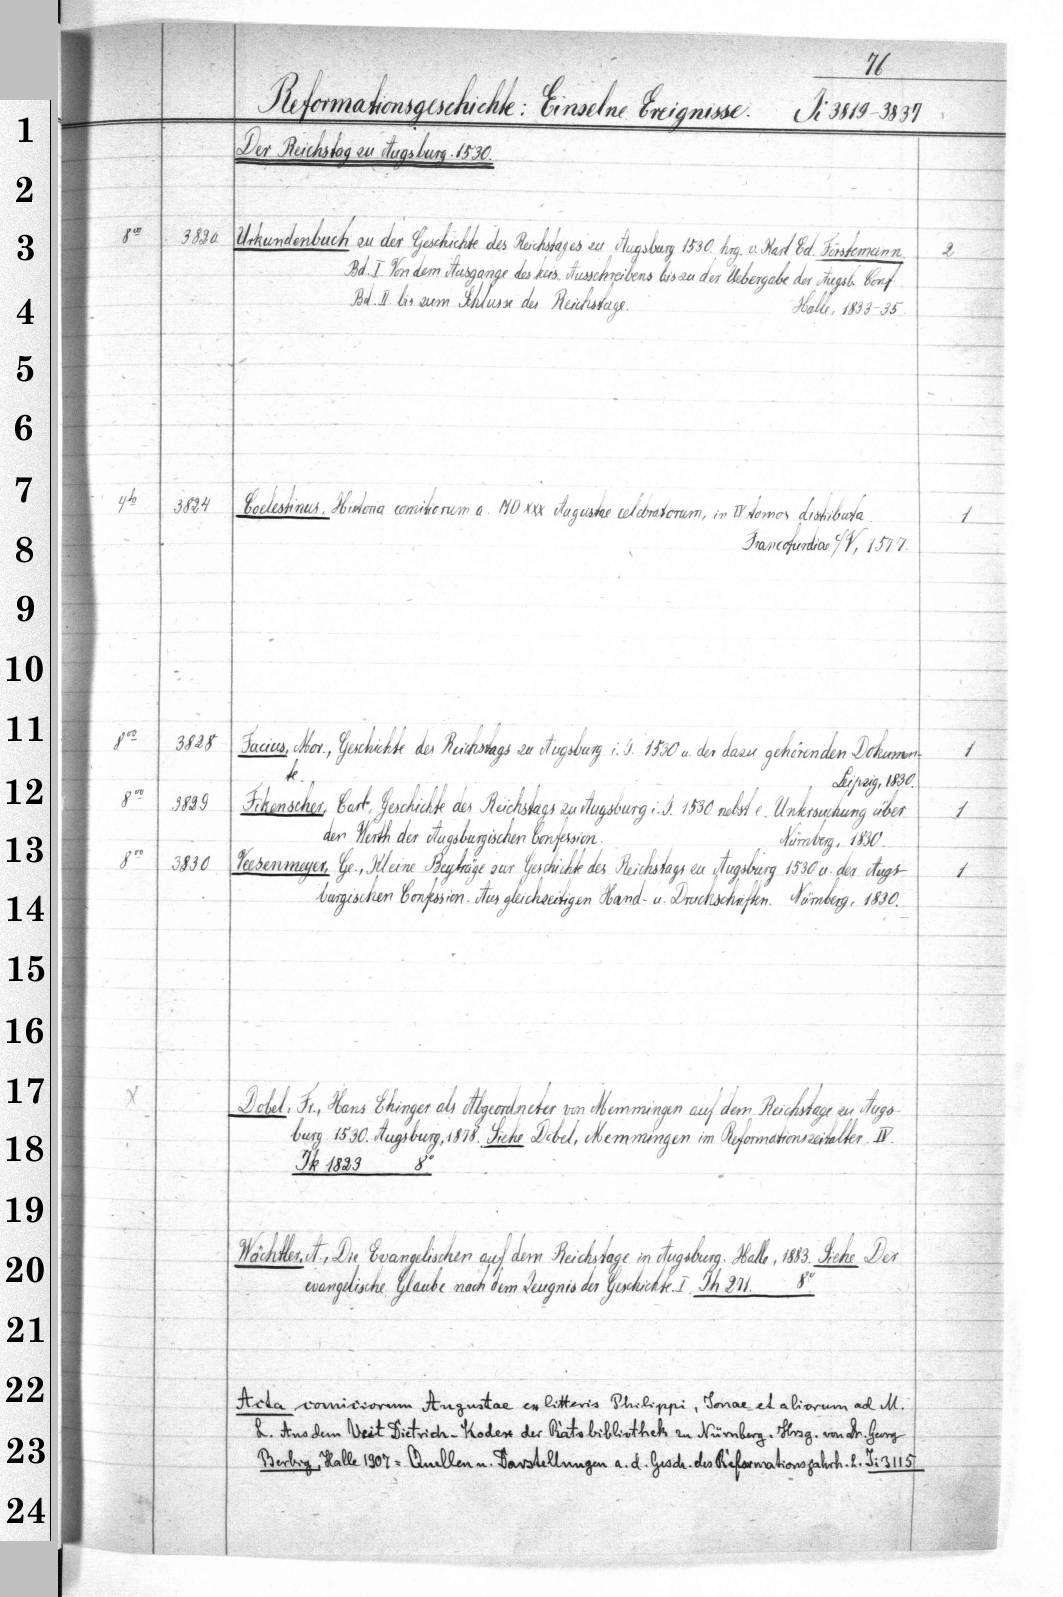 76
Reformationsgeschichte: Einzelne Ereignisse. Ti 3819-3837
1
Der Reichstag zu Augsburg. 1530.
2
3 8vo 3820 Urkundenbuch zu der Geschichte des Reichstages zu Augsburg 1530. hrg. v. Karl Ed. Förstemann 2
Bd. I. Von dem Ausgange des keis. Ausschreibens bis zu der Uebergabe der Augsb. Conf.
4 Bd. II. bis zum Schlusse des Reichstags. Halle, 1833-35.
5
6
7 4to 3824 Coelestinus, Historia comitiorum a. MDXXX Augustae celebratorum, in IV tomos distributa 1
8 Francofurdiae c/V, 1577.
9
10
11 8vo 3828 Facius, Mor., Geschichte des Reichstags zu Augsburg i. J. 1530 u. der dazu gehörenden Dokumen- 1
te. Leipzig, 1830.
12 8vo 3829 Fikenscher, Carl, Geschichte des Reichstags zu Augsburg i. J. 1530 nebst e. Untersuchung über 1
den Werth der Augsburgischen Confession. Nürnberg, 1830.
13 8vo 3830 Veesenmeyer, Ge., Kleine Beyträge zur Geschichte des Reichstags zu Augsburg 1530 u. der Augs- 1
14 burgischen Confession. Aus gleichzeitigen Hand- u. Druckschriften. Nürnberg, 1830.
15
16
17 X Dobel, Fr., Hans Ehinger als Abgeordneter von Memmingen auf dem Reichstage zu Augs-
18 burg 1530. Augsburg, 1878. Siehe Dobel, Memmingen im Reformationszeitalter. IV.
Tk 1823 8°
19
20 Wächtler, A., Die Evangelischen auf dem Reichstage in Augsburg. Halle, 1883. Siehe Der
evangelische Glaube nach dem Zeugnis der Geschichte. I. Th 271. 8°
21
22 Acta comiciorum Augustae ex litteris Philippi, Jonae et aliorum ad M.
L. Aus dem Veit Dietrich-Kodex der Ratsbibliothek zu Nürnberg. Hrsg. von Dr. Georg
23 Berbig, Halle 1907 = Quellen u. Darstellungen a. d. Gesch. des Reformationsjahrh. 2. Ti 3115
24